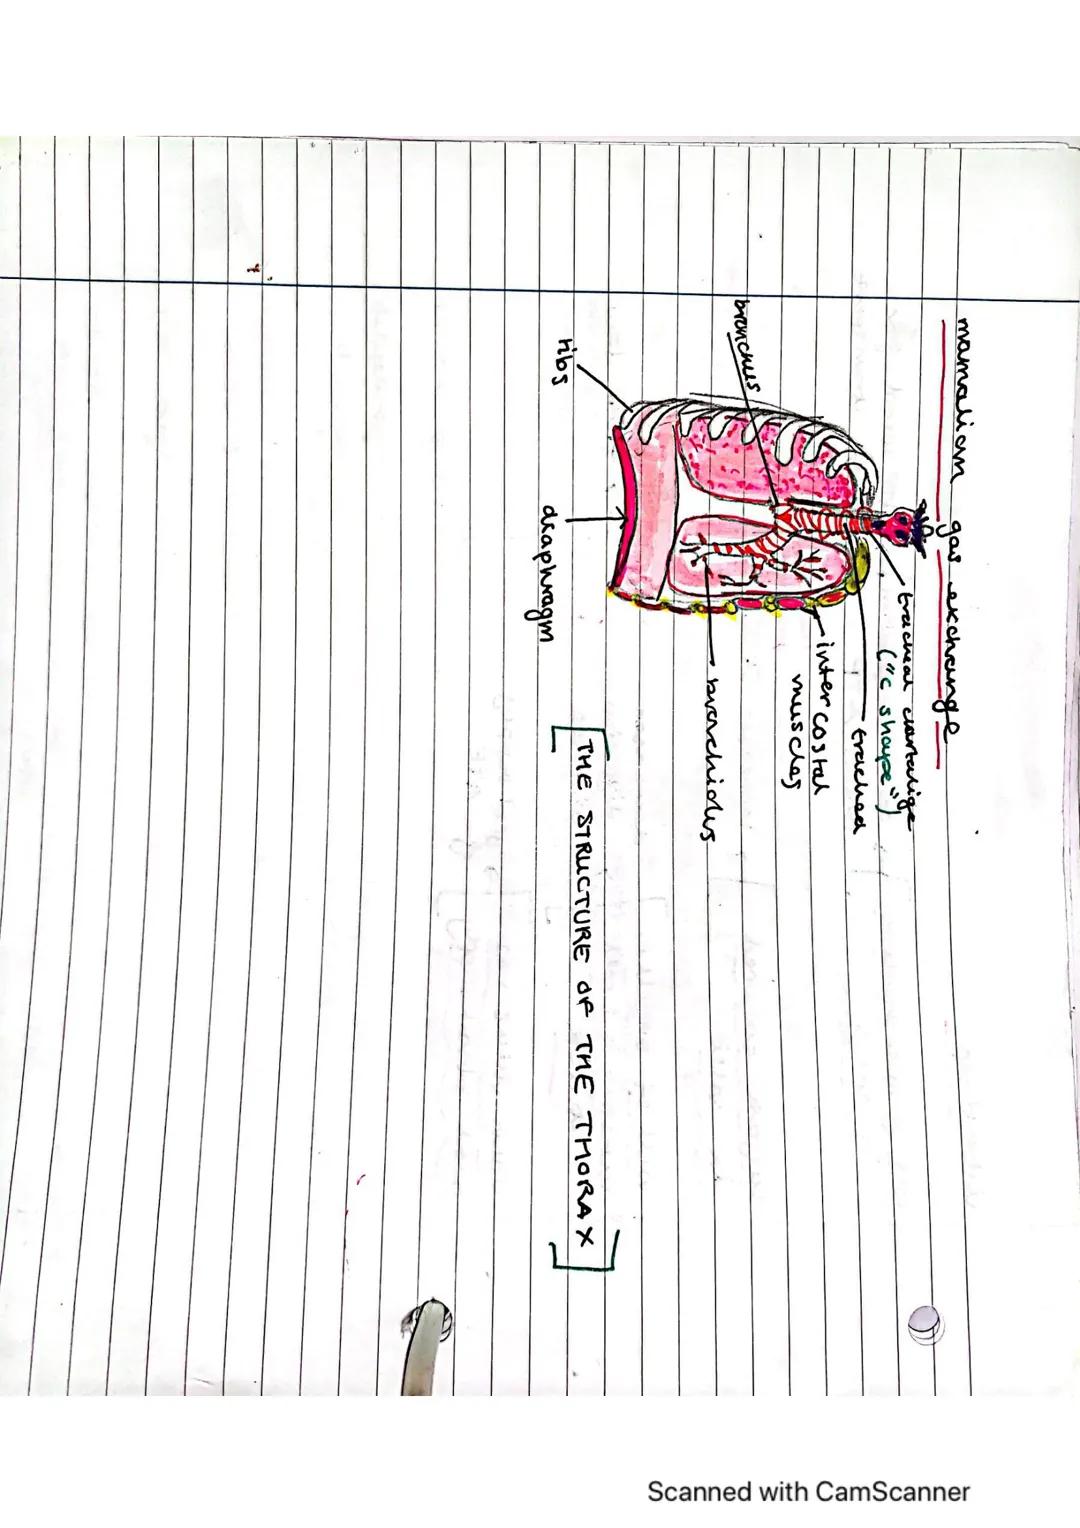 mamalian gas exchange
tracheal cartalige
("c shape")
trachea
bronchus
intercostal
muscles
bronchioles
ribs
diaphragm
THE STRUCTURE OF THE THORAX
Scanned with CamScanner